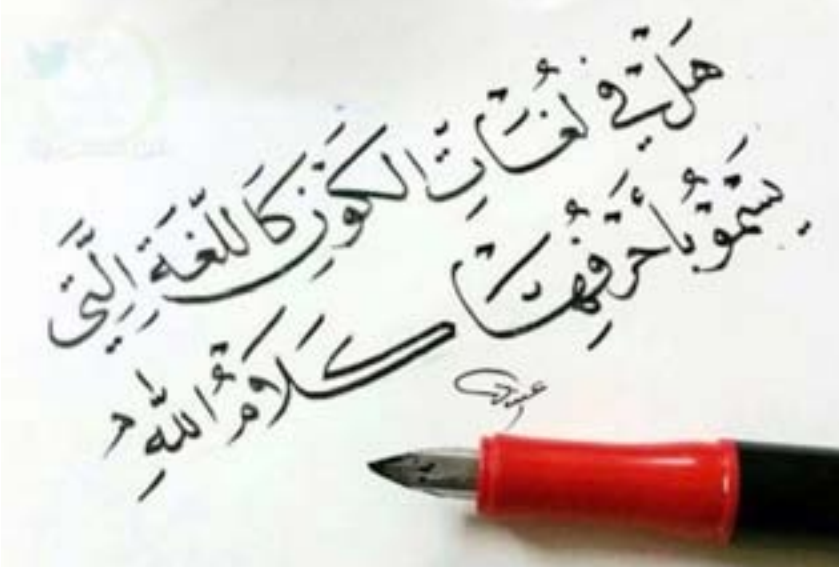 هَل في لُغَاتِ الكَوْنِ كَاللُّغَةِ الَّتِي
تَسْمُو بأَحْرُفِهَا كَلَامُ اللهِ